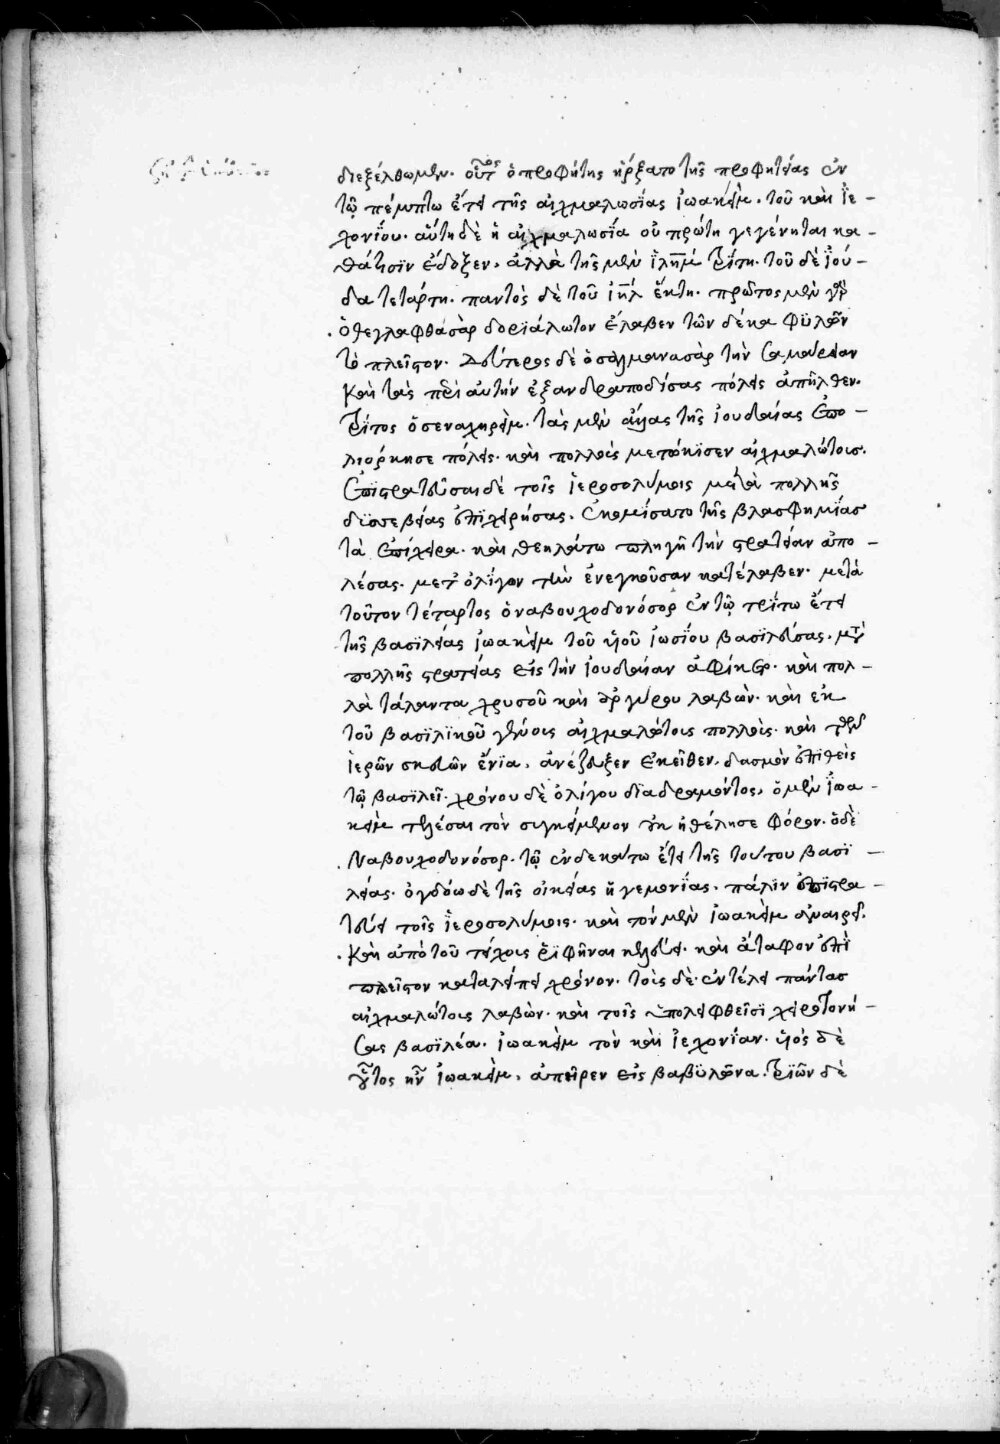 διεξέλθωμεν. οὗτος ὁ προφήτης ἤρξατο τῆς προφητείας ἐν
τῷ πέμπτω ἔτει τῆς αἰχμαλωσίας ἰωακεὶμ. τοῦ καὶ ἰε-
χονίου. αὕτη δὲ ἡ αἰχμαλωσία οὐ πρώτη γεγένηται κα-
θά τισϊν ἔδοξεν. ἀλλὰ τῆς μὲν ἱλῆμ τρίτη. τοῦ δὲ ἰού-
δα τετάρτη. παντὸς δὲ τοῦ ἰηλ ἕκτη. πρῶτος μὲν γὰρ
ὁ θεγλαφθασὰρ δορϊάλωτον ἔλαβεν τῶν δέκα φϋλῶν
τὸ πλεῖστον. Δεύτερος δὲ ὁ σαλμανασὰρ τὴν σαμάρειαν
καὶ τὰς περὶ αὐτὴν ἐξανδραποδίσας πόλεις ἀπῆλθεν.
τρίτος ὁ σεναχηρεὶμ. τὰς μὲν ἄλλας τῆς ἰουδαίας ἐπο-
λιόρκησε πόλεις. καὶ πολλοὺς μετώκϊσεν αἰχμαλώτους.
ἐπϊστρατεῦσαι δὲ τοῖς ἱεροσολύμοις μετὰ πολλῆς
δϋσσεβείας ἐπϊχειρήσας. ἐκομίσατο τῆς βλασφημίας
τὰ ἐπίχειρα. καὶ θεηλάτω πληγῆ τὴν στρατείαν ἀπο-
λέσας. μετ' ὀλίγον τὴν ἐνεγκοῦσαν κατέλαβεν. μετὰ
τοῦτον τέταρτος ὁ ναβουχοδονόσορ ἐν τῷ τρίτω ἔτει
τῆς βασϊλείας ἰωακεὶμ τοῦ υἱοῦ ἰωσίου βασϊλεύσας. μετὰ
πολλῆς στρατείας εἰς τὴν ἰουδαίαν ἀφίκετο. καὶ πολ-
λὰ τάλαντα χρυσοῦ καὶ ἀργύρου λαβὼν. καὶ ἐκ
τοῦ βασϊλϊκοῦ γένους αἰχμαλώτους πολλοὺς. καὶ τῶν
ἱερῶν σκευῶν ἔνϊα. ἀνέζευξεν ἐκεῖθεν. δασμὸν ἐπϊθεὶς
τῷ βασϊλεῖ. χρόνου δὲ ὀλίγου δϊαδραμόντος. ὁ μὲν ἰωα-
κεὶμ τελέσαι τὸν συγκείμενον οὐκ ἠθέλησε φόρον. ὁ δὲ
Ναβουχοδονόσορ. τῷ ἑνδεκάτω ἔτει τῆς τούτου βασϊ-
λείας. ὀγδόω δὲ τῆς οἰκείας ἡγεμονίας. πάλϊν ἐπϊστρα-
τεύει τοῖς ἱεροσολύμοις. καὶ τὸν μὲν ἰωακεὶμ ἀναιρεῖ.
καὶ ἀπὸ τοῦ τείχους ῥϊφῆναι κελεύει. καὶ ἄταφον ἐπὶ
πλεῖστον καταλείπει χρόνον. τοὺς δὲ ἐν τέλει πάντας
αἰχμαλώτους λαβὼν. καὶ τοῖς ὑπολειφθεῖσϊ χειροτονή-
σας βασϊλέα. ἰωακεὶμ τὸν καὶ ἰεχονίαν. υἱός δὲ
οὗτος ἦν ἰωακεὶμ. ἀπῆρεν εἰς βαβϋλῶνα. τρϊῶν δὲ